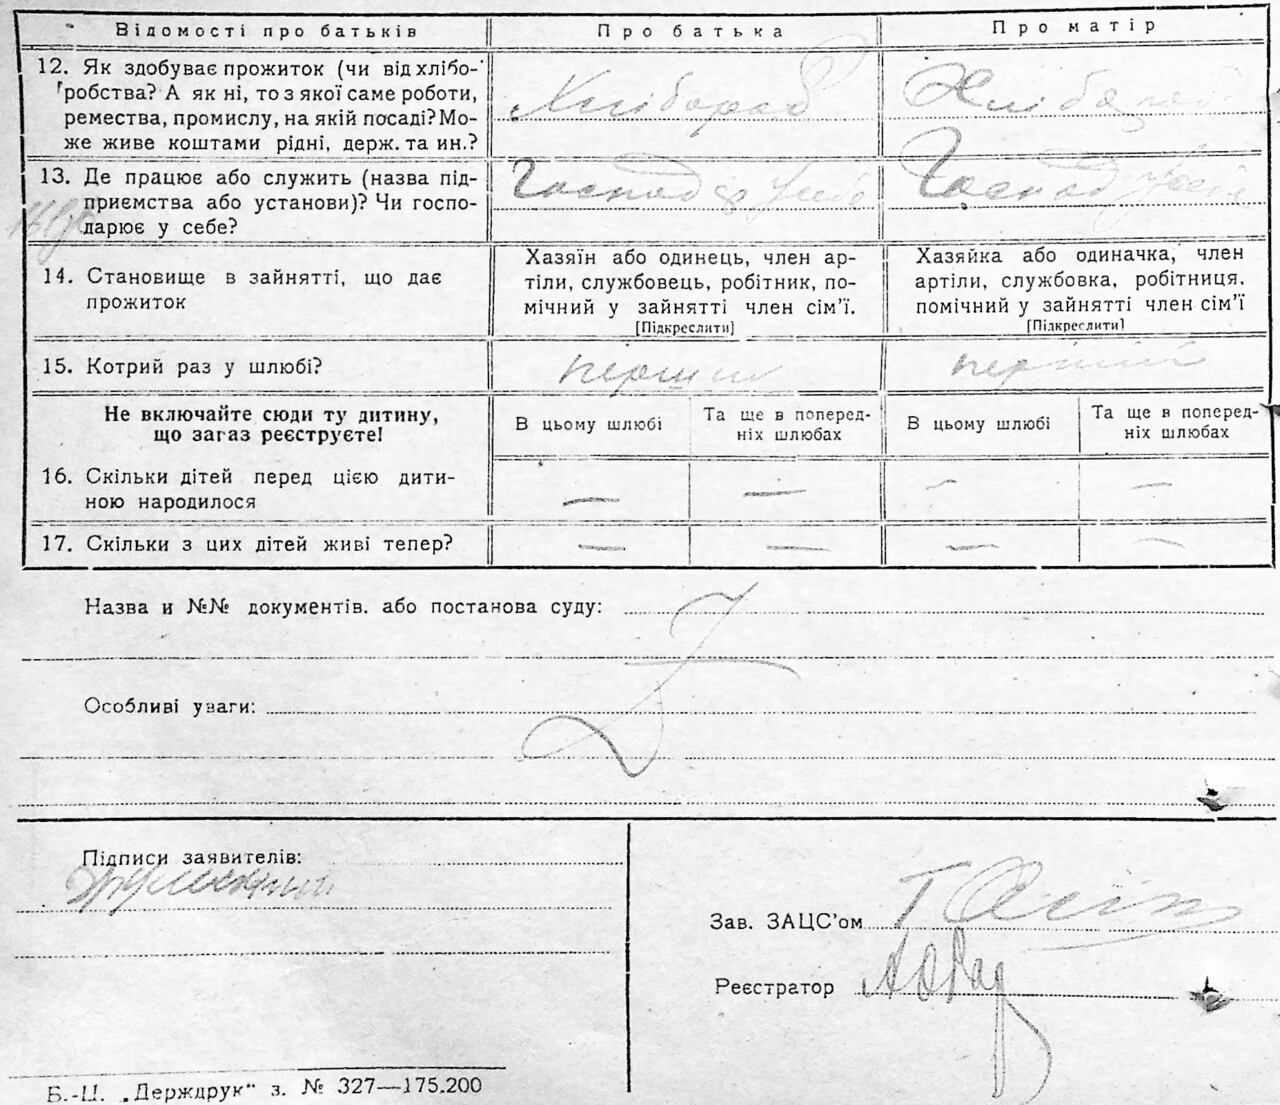 Відомості про батьків
Про батька
Про матір
12. Як здобуває прожиток (чи від хлібо-
робства? А як ні, то з якої саме роботи,
ремества, промислу, на якій посаді? Мо-
же живе коштами рідні, держ. та ин.?
Хлібороб
Хлібороб
13. Де працює або служить (назва під-
приємства або установи)? Чи госпо-
дарює у себе?
Господ у себе
Господ у себе
14. Становище в зайнятті, що дає
прожиток
Хазяїн або одинець, член ар-
тіли, службовець, робітник, по-
мічний у зайнятті член сім’ї.
[Підкреслити]
Хазяйка або одиначка, член
артіли, службовка, робітниця,
помічний у зайнятті член сім’ї
[Підкреслити]
15. Котрий раз у шлюбі?
перший
перший
Не включайте сюди ту дитину,
що загаз реєструєте!
В цьому шлюбі
Та ще в поперед-
ніх шлюбах
В цьому шлюбі
Та ще в поперед-
ніх шлюбах
16. Скільки дітей перед цією дити-
ною народилося
— — — —
17. Скільки з цих дітей живі тепер?
— — — —
Назва и №№ документів. або постанова суду:
Особливі уваги:
Підписи заявителів:
Зав. ЗАЦС’ом
Реєстратор
Б.-Ц. „Держдрук“ з. № 327—175.200